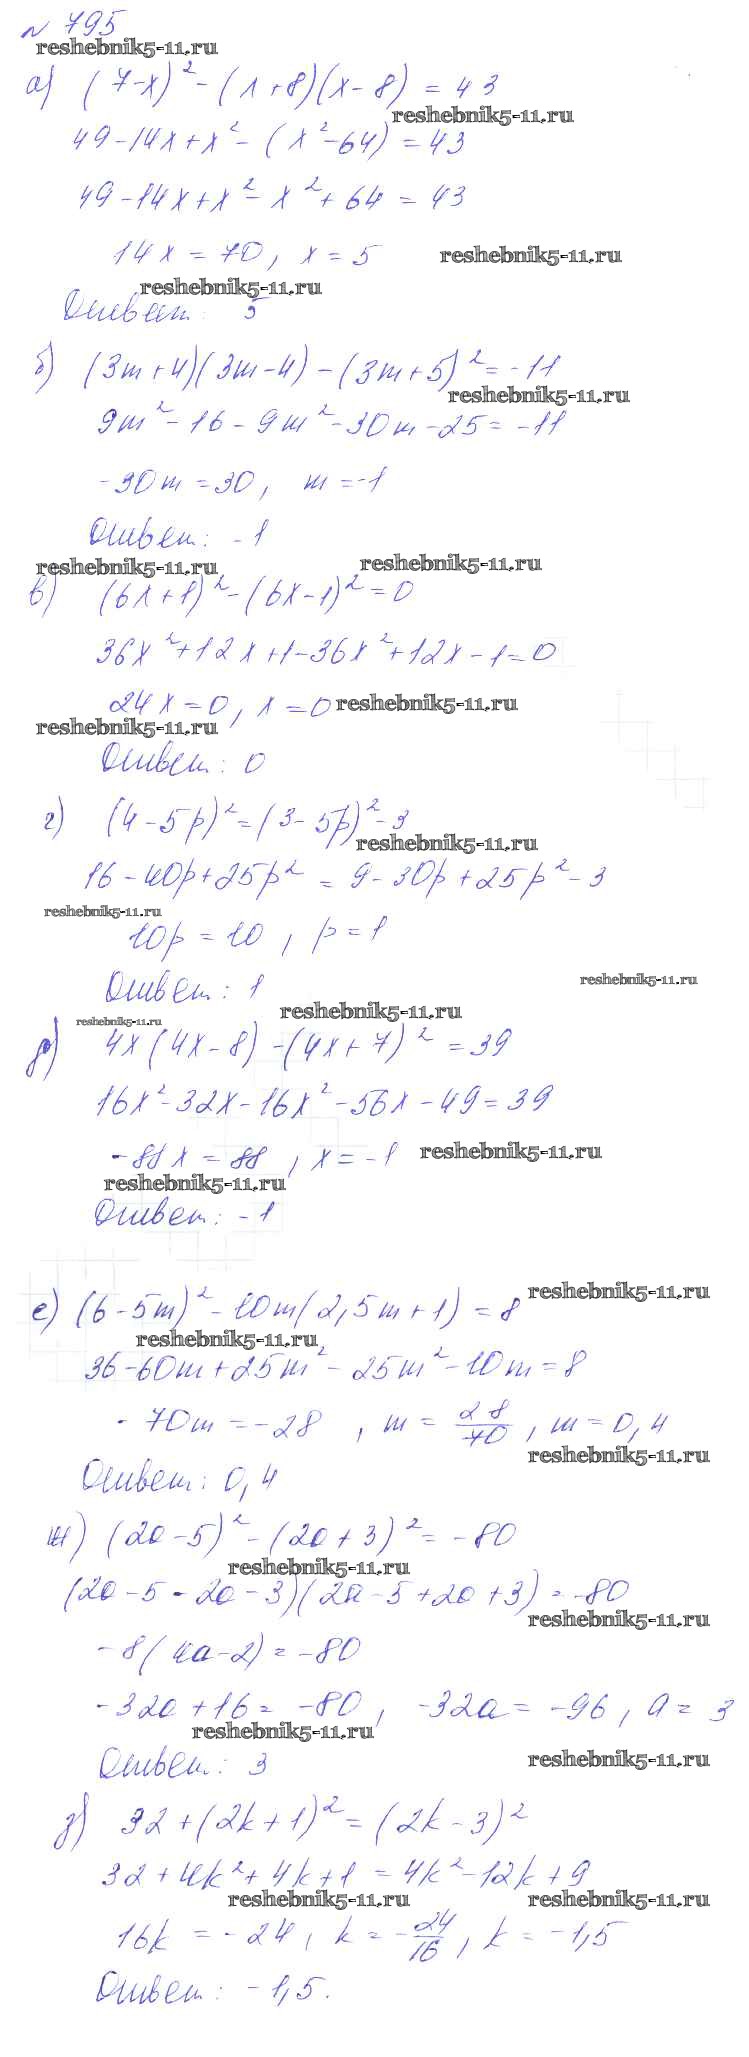 № 795
reshebnik5-11.ru
а) (7-x)² - (x+8)(x-8) = 43
reshebnik5-11.ru
49-14x+x² - (x²-64) = 43
49-14x+x²-x²+64 = 43
14x = 70, x = 5
reshebnik5-11.ru
reshebnik5-11.ru
Ответ: 5
б) (3m+4)(3m-4) - (3m+5)² = -11
reshebnik5-11.ru
9m² - 16 - 9m² - 30m - 25 = -11
-30m = 30, m = -1
Ответ: -1
reshebnik5-11.ru reshebnik5-11.ru
в) (6x+1)² - (6x-1)² = 0
36x²+12x+1-36x²+12x-1=0
24x=0, x=0 reshebnik5-11.ru
reshebnik5-11.ru
Ответ: 0
г) (4-5p)² = (3-5p)² - 3
reshebnik5-11.ru
16-40p+25p² = 9-30p+25p²-3
reshebnik5-11.ru
10p = 10, p = 1
Ответ: 1 reshebnik5-11.ru
reshebnik5-11.ru reshebnik5-11.ru
д) 4x(4x-8) - (4x+7)² = 39
16x²-32x-16x²-56x-49=39
-88x = 88, x = -1 reshebnik5-11.ru
reshebnik5-11.ru
Ответ: -1
reshebnik5-11.ru
е) (6-5m)² - 10m(2,5m+1) = 8
reshebnik5-11.ru
36-60m+25m²-25m²-10m=8
-70m = -28, m = 28/70, m = 0,4
reshebnik5-11.ru
Ответ: 0,4
ж) (2a-5)² - (2a+3)² = -80
reshebnik5-11.ru
(2a-5-2a-3)(2a-5+2a+3) = -80
reshebnik5-11.ru
-8(4a-2) = -80
-32a+16 = -80, -32a = -96, a = 3
reshebnik5-11.ru
Ответ: 3 reshebnik5-11.ru
з) 32+(2k+1)² = (2k-3)²
32+4k²+4k+1 = 4k²-12k+9
reshebnik5-11.ru reshebnik5-11.ru
16k = -24, k = -24/16, k = -1,5
Ответ: -1,5.